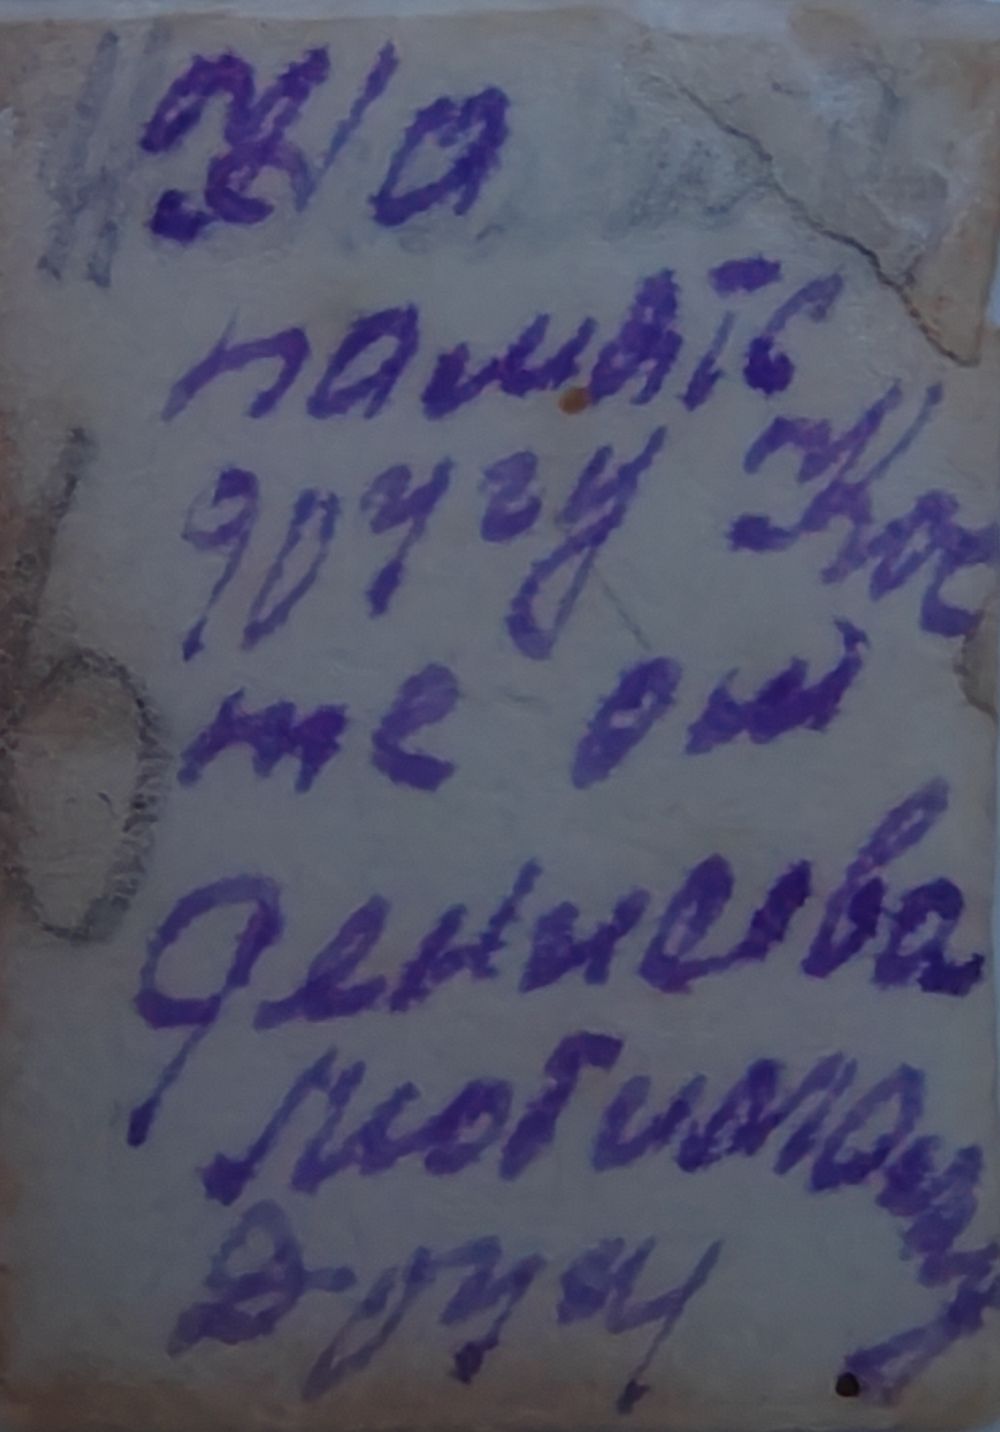 На
память
другу Кос
те от
Денисева
любимому
другу